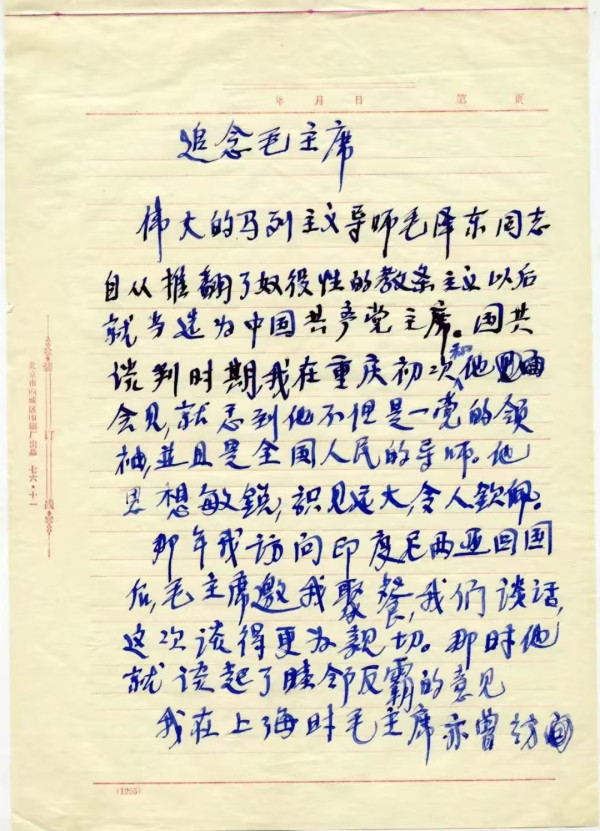 年 月 日 第 页
追念毛主席
伟大的马列主义导师毛泽东同志
自从推翻了奴役性的教条主义以后
就当选为中国共产党主席。国共
谈判时期我在重庆初次和他
会见,就忘到他不但是一党的领
袖,並且是全国人民的导师。他
思想敏锐,识见远大,令人钦佩。
那年我访问印度尼西亚回国
后,毛主席邀我聚餐,我们谈话,
这次谈得更为親切。那时他
就谈起了睦邻反霸的意见
我在上海时毛主席亦曾访
装订线
北京市西城区印刷厂出品 七六·十一
(1265)